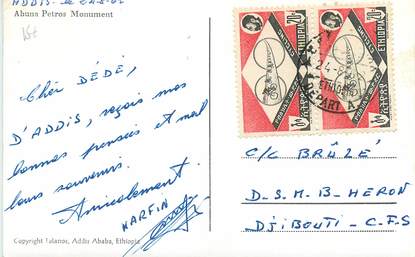 ADDIS - le
Abuns Petros Monument
Cher DÉDÉ,
D'ADDIS, reçois mes
bonnes pensées et meil
leurs souvenirs.
Amicalement.
MARFIN
Copyright Ialanos, Addis Ababa, Ethiopia
ETHIOPIA
ETHIOPIA
DEPART A
C/C BRÛLÉ
D.S.M-B-HERON
DJIBOUTI - C.F.S